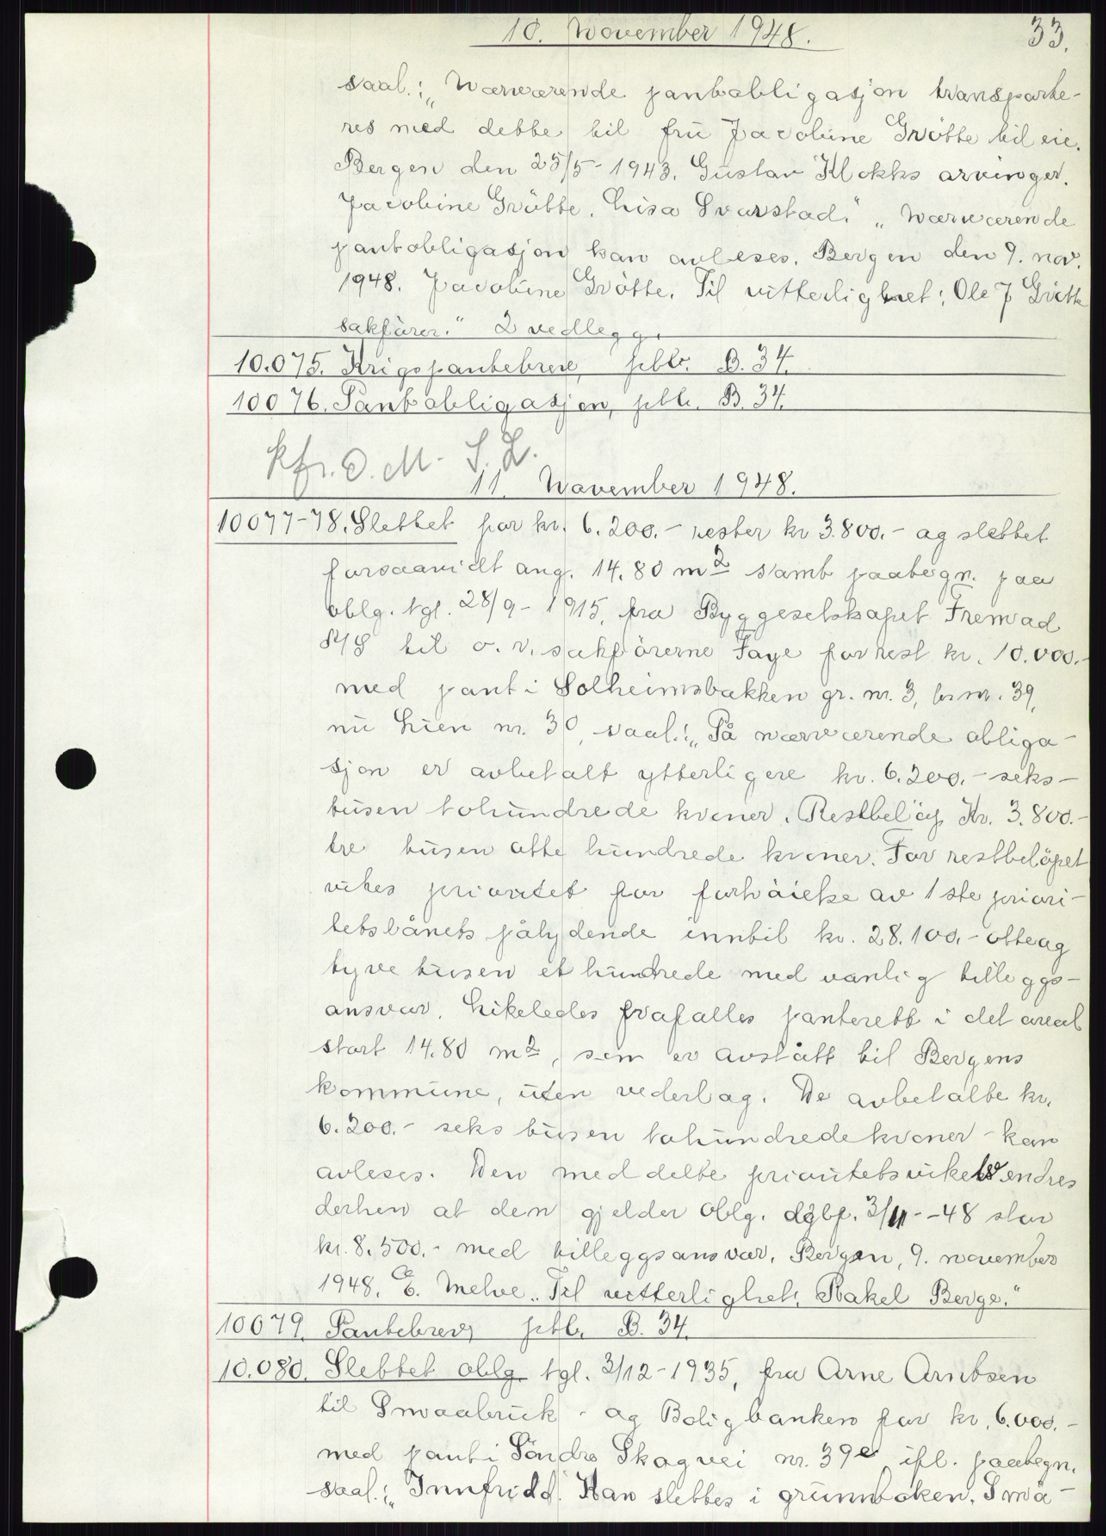 10. November 1948.
33.
saal.: „Nærværende pantobligasjon transporte-
res med dette til fru Jacobine Grötte til eie.
Bergen den 25/5- 1943. Gustav Klokks arvinger.
Jacobine Grötte. Lisa Svarstad." „Nærværende
pantobligasjon kan avleses. Bergen den 9. nov.
1948. Jacobine Grötte. Til vitterlighet: Ole J Grötte
sakförer." 2 vedlegg.
10.075. Krigspantebrev, ptb. B. 34.
10076. Pantobligasjon, ptb. B. 34.
kfr. O. M. S. L.
11. November 1948.
10077-78. Slettet for kr. 6.200.- rester kr 3.800.- og slettet
forsaavidt ang. 14.80 m2 samt paategn. paa
oblg. tgl. 28/9- 1915, fra Byggeselskapet Fremad
A/S til o. r. sakförerne Faye for rest kr. 10.000.-
med pant i Solheimsbakken gr. nr. 3, br. nr. 39,
nu Lien nr. 30, saal.: „På nærværende obliga-
sjon er avbetalt ytterligere kr. 6.200.- seks-
tusen tohundrede kroner. Restbelöp Kr. 3.800.-
tre tusen otte hundrede kroner. For restbelöpet
vikes prioritet for forhöielse av 1ste priori-
tetslånets pålydende inntil kr. 28.100.- otteog
tyve tusen et hundrede med vanlig tilleggs-
ansvar. Likeledes frafalles panterett i det areal
stort 14.80 m2, som er avstått til Bergens
kommune, uten vederlag. De avbetalte kr.
6.200.- seks tusen tohundrede kroner - kan
avleses. Den meddelte prioritetsvikelse endres
derhen at den gjelder oblg. dgbf. 3/11- -48 stor
kr. 8.500.- med tilleggsansvar. Bergen, 9. november
1948. E. Melve. Til vitterlighet: Rakel Berge."
10079. Pantebrev, ptb. B. 34.
10.080. Slettet oblg. tgl. 3/12-1935, fra Arne Arntsen
til Smaabruk- og Boligbanken for kr. 6.000.-
med pant i Söndre Skogvei nr. 39e, ifl. paategn.
saal.: „Innfridd. Kan slettes i grunnboken. Små-